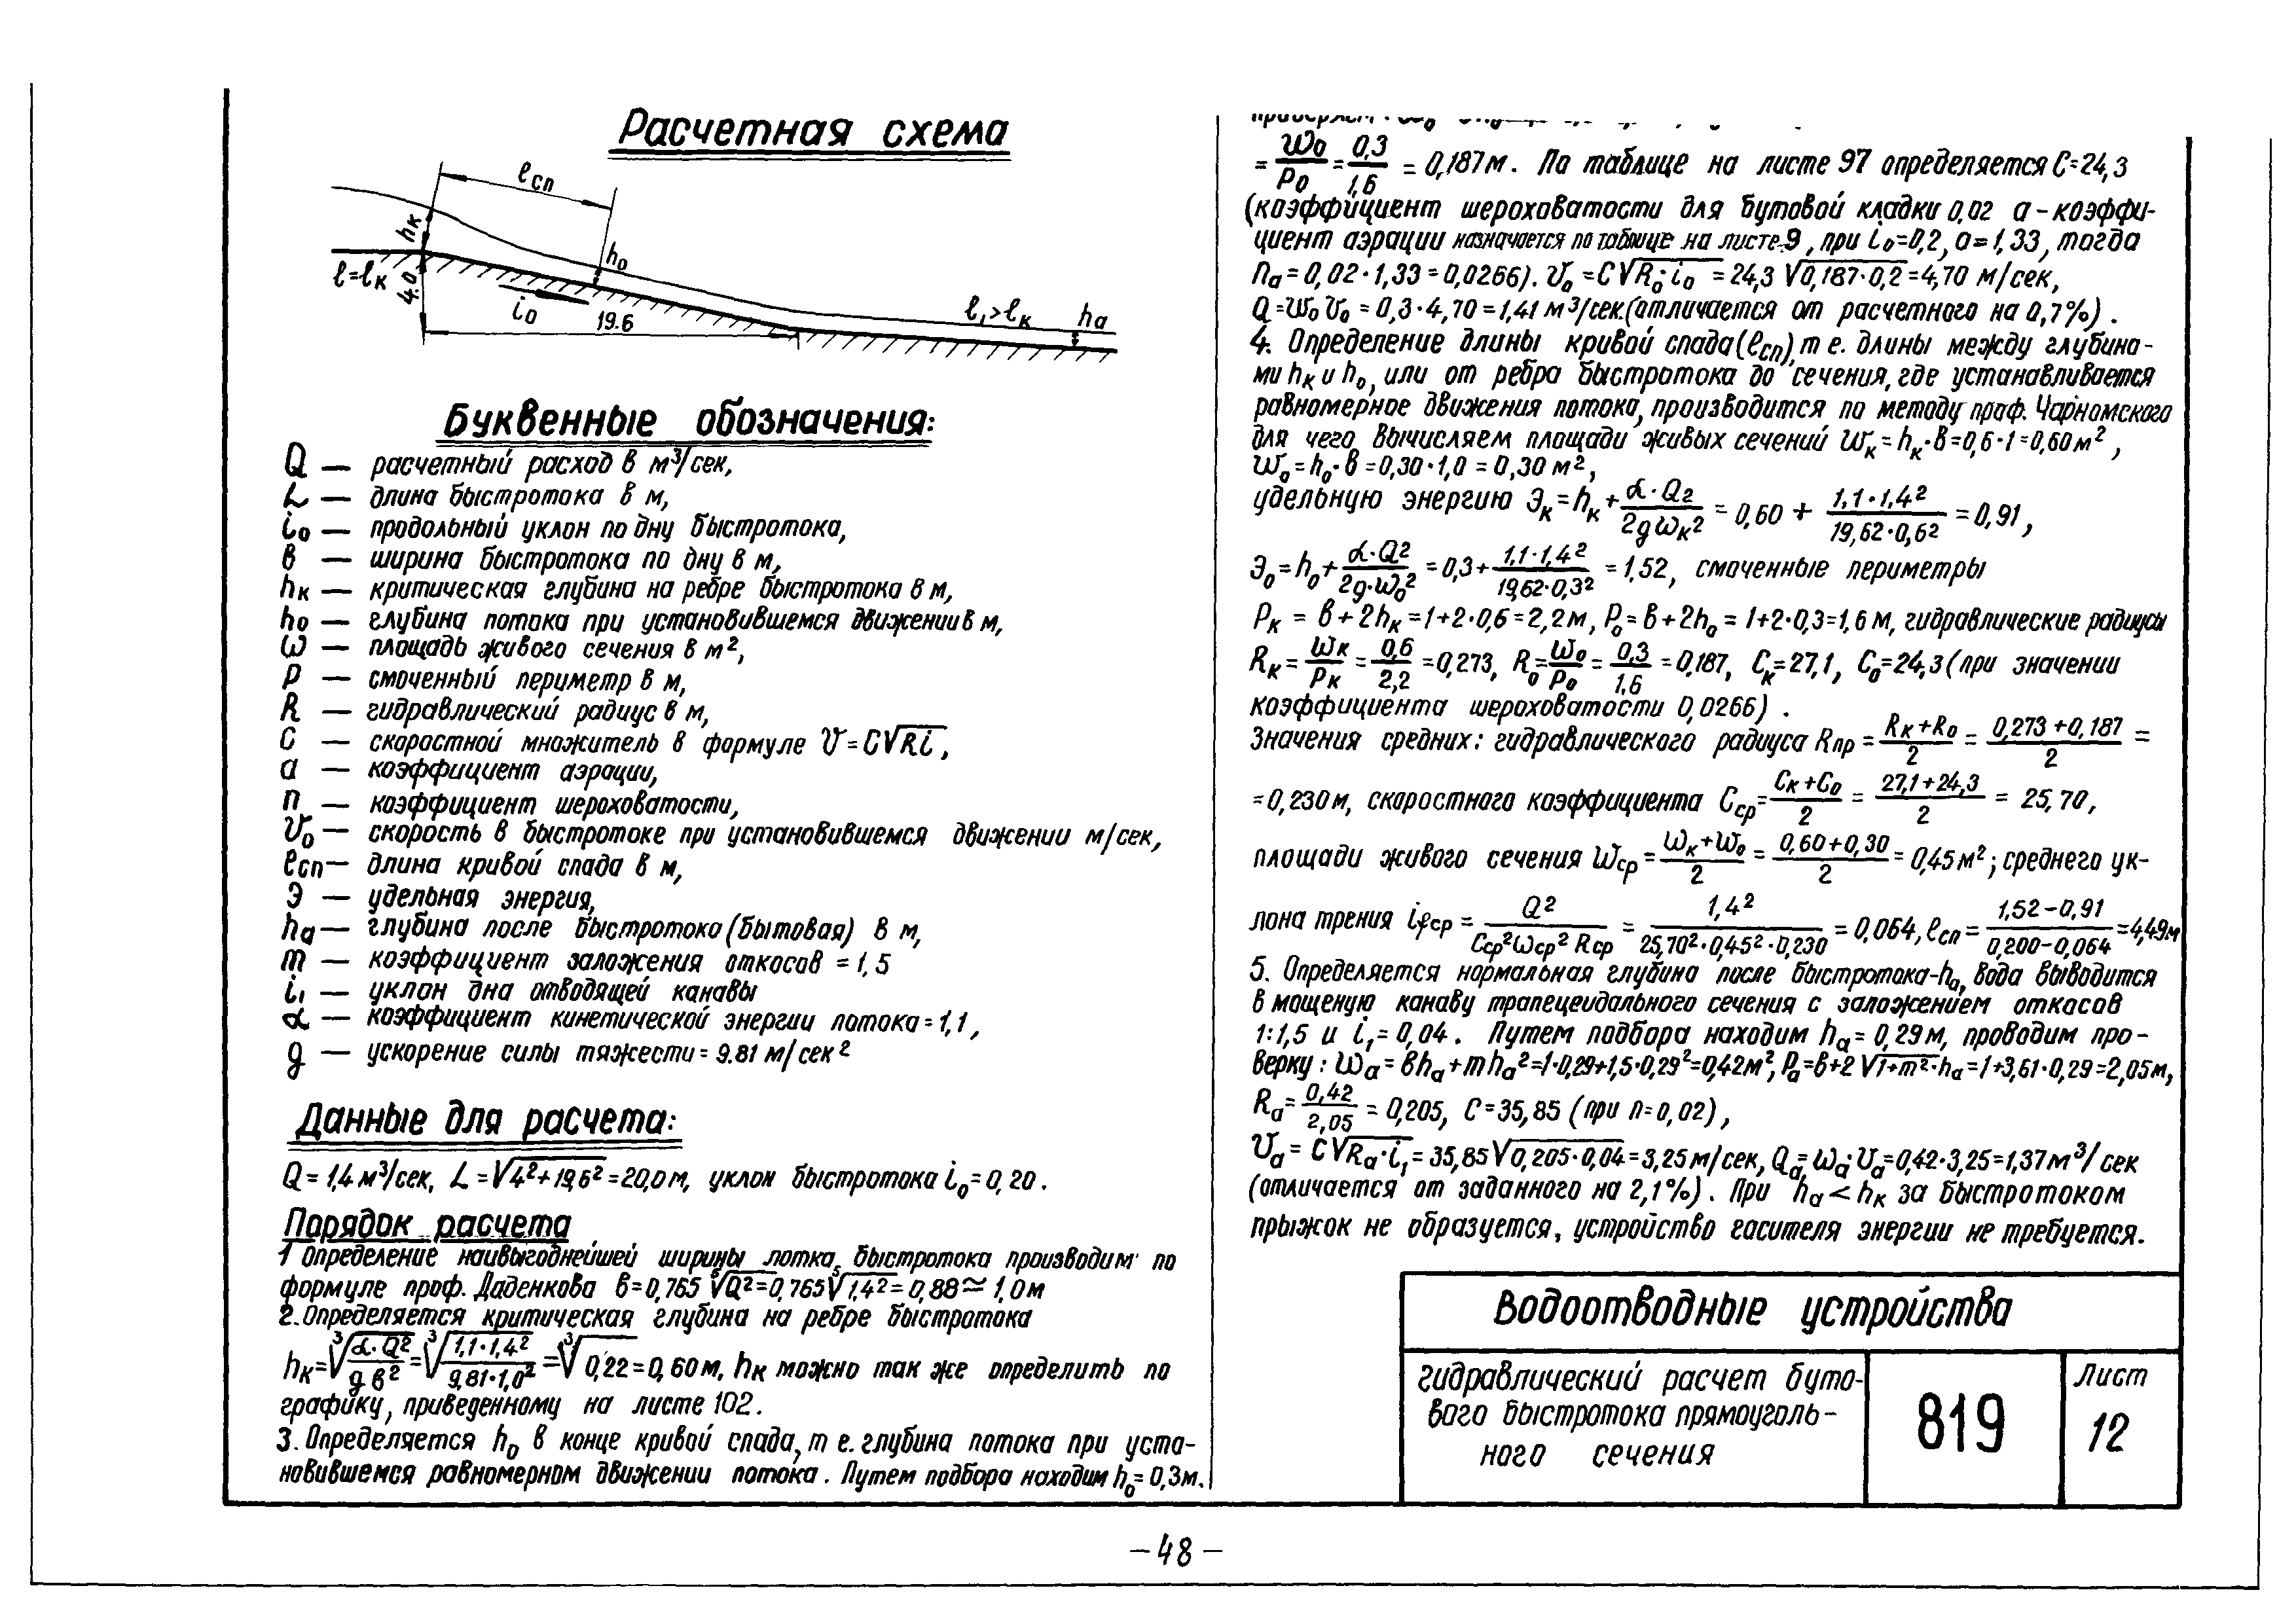 Расчетная схема
ℓсп
hк
h₀
ℓ=ℓк
4.0
i₀
19.6
ℓ₁>ℓк
hа
Буквенные обозначения:
Q — расчетный расход в м³/сек,
L — длина быстротока в м,
i₀ — продольный уклон по дну быстротока,
в — ширина быстротока по дну в м,
hк — критическая глубина на ребре быстротока в м,
h₀ — глубина потока при установившемся движении в м,
ω — площадь живого сечения в м²,
P — смоченный периметр в м,
R — гидравлический радиус в м,
C — скоростной множитель в формуле V=C√Ri,
a — коэффициент аэрации,
n — коэффициент шероховатости,
V₀ — скорость в быстротоке при установившемся движении м/сек,
ℓсп — длина кривой спада в м,
Э — удельная энергия,
hа — глубина после быстротока (бытовая) в м,
m — коэффициент заложения откосов = 1,5
i₁ — уклон дна отводящей канавы
α — коэффициент кинетической энергии потока = 1,1,
g — ускорение силы тяжести = 9.81 м/сек²
Данные для расчета:
Q = 1,4 м³/сек, L = √4²+19,6² = 20,0 м, уклон быстротока i₀ = 0,20.
Порядок расчета
1 Определение наивыгоднейшей ширины лотка быстротока производим по
формуле проф. Даденкова в=0,765 ⁵√Q² = 0,765 ⁵√1,4² = 0,88 ≈ 1,0 м
2. Определяется критическая глубина на ребре быстротока
hк = ³√α·Q²/gв² = ³√1,1·1,4²/9,81·1,0² = ³√0,22 = 0,60 м, hк можно так же определить по
графику, приведенному на листе 102.
3. Определяется h₀ в конце кривой спада, т е. глубина потока при уста-
новившемся равномерном движении потока. Путем подбора находим h₀ = 0,3м.
= ω₀/P₀ = 0,3/1,6 = 0,187м. По таблице на листе 97 определяется C=24,3
(коэффициент шероховатости для бутовой кладки 0,02 а - коэффи-
циент аэрации назначается по таблице на листе 9, при i₀=0,2, а=1,33, тогда
nа = 0,02·1,33 = 0,0266). V₀ = C√R₀·i₀ = 24,3 √0,187·0,2 = 4,70 м/сек,
Q = ω₀V₀ = 0,3·4,70 = 1,41 м³/сек. (отличается от расчетного на 0,7%).
4. Определение длины кривой спада (ℓсп), т е. длины между глубина-
ми hк и h₀, или от ребра быстротока до сечения, где устанавливается
равномерное движения потока, производится по методу проф. Чарномского
для чего вычисляем площади живых сечений ωк = hк·в = 0,6·1 = 0,60 м²,
ω₀ = h₀·в = 0,30·1,0 = 0,30 м²,
удельную энергию Эк = hк + α·Q²/2gωк² = 0,60 + 1,1·1,4²/19,62·0,6² = 0,91,
Э₀ = h₀ + α·Q²/2g·ω₀² = 0,3 + 1,1·1,4²/19,62·0,3² = 1,52, смоченные периметры
Pк = в+2hк = 1+2·0,6 = 2,2 м, P₀ = в+2h₀ = 1+2·0,3 = 1,6 м, гидравлические радиусы
Rк = ωк/Pк = 0,6/2,2 = 0,273, R₀ = ω₀/P₀ = 0,3/1,6 = 0,187, Cк = 27,1, C₀ = 24,3 (при значении
коэффициента шероховатости 0,0266).
Значения средних: гидравлического радиуса Rпр = Rк+R₀/2 = 0,273+0,187/2 =
= 0,230 м, скоростного коэффициента Cср = Cк+C₀/2 = 27,1+24,3/2 = 25,70,
площади живого сечения ωср = ωк+ω₀/2 = 0,60+0,30/2 = 0,45 м²; среднего ук-
лона трения ifср = Q²/Cср²ωср²Rср = 1,4²/25,70²·0,45²·0,230 = 0,064, ℓсп = 1,52-0,91/0,200-0,064 = 4,49м
5. Определяется нормальная глубина после быстротока-hа, вода выводится
в мощеную канаву трапецеидального сечения с заложением откосов
1:1,5 и i₁ = 0,04. Путем подбора находим hа = 0,29 м, проводим про-
верку: ωа = вhа + mhа² = 1·0,29+1,5·0,29² = 0,42м², Pа = в+2√1+m²·hа = 1+3,61·0,29 = 2,05м,
Rа = 0,42/2,05 = 0,205, C = 35,85 (при n=0,02),
Vа = C√Rа·i₁ = 35,85√0,205·0,04 = 3,25 м/сек, Qа = ωа·Vа = 0,42·3,25 = 1,37 м³/сек
(отличается от заданного на 2,1%). При hа < hк за быстротоком
прыжок не образуется, устройство гасителя энергии не требуется.
Водоотводные устройства
гидравлический расчет буто-
вого быстротока прямоуголь-
ного сечения
819
Лист
12
-48-